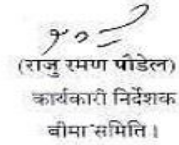 (राजु रमण पौडेल)
कार्यकारी निर्देशक
बीमा समिति।